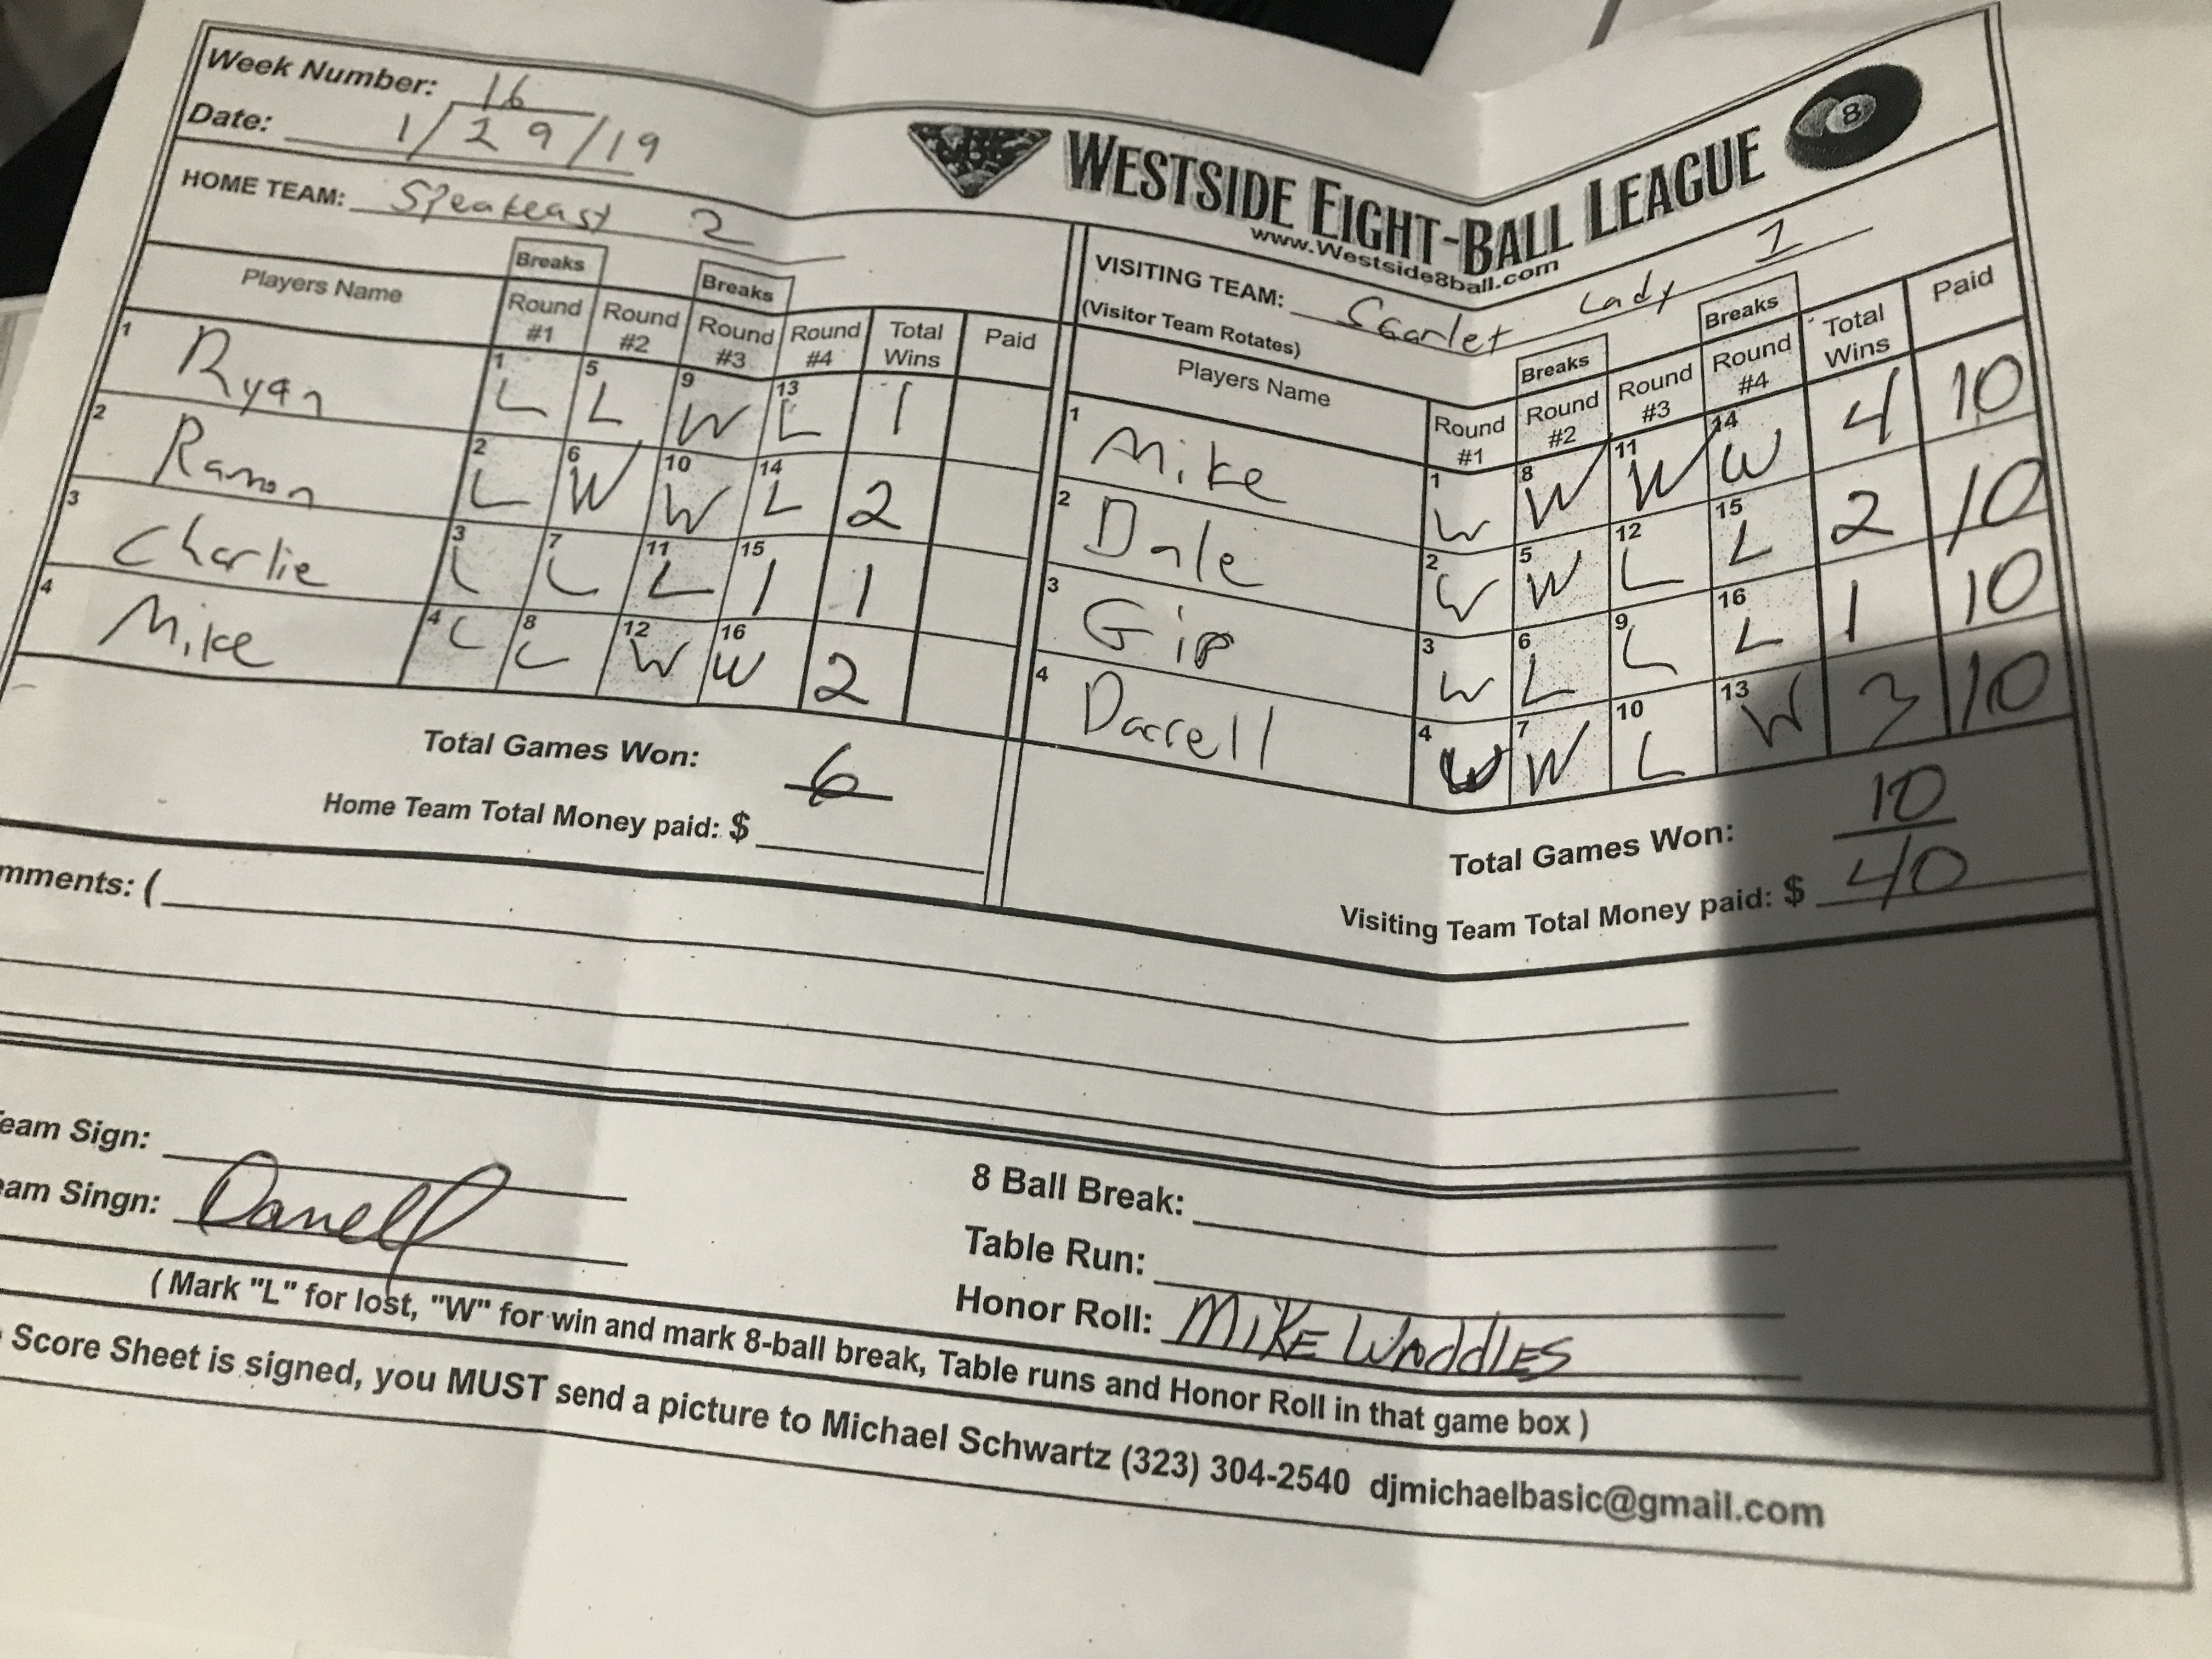 Week Number: 16
Date: 1/29/19
WESTSIDE EIGHT-BALL LEAGUE
8
www.Westside8ball.com
HOME TEAM: Speakeasy 2
Breaks Breaks
Players Name Round #1 Round #2 Round #3 Round #4 Total Wins Paid
1 Ryan 1 L 5 L 9 W 13 L 1
2 Ramon 2 L 6 W 10 W 14 L 2
3 Charlie 3 L 7 L 11 L 15 1 1
4 Mike 4 L 8 L 12 W 16 W 2
Total Games Won: 6
Home Team Total Money paid: $
VISITING TEAM: Scarlet Lady 1
(Visitor Team Rotates)
Breaks Breaks
Players Name Round #1 Round #2 Round #3 Round #4 Total Wins Paid
1 Mike 1 W 8 W 11 W 14 W 4 10
2 Dale 2 W 5 W 12 L 15 L 2 10
3 Gip 3 W 6 L 9 L 16 L 1 10
4 Darrell 4 W 7 W 10 L 13 W 3 10
Total Games Won: 10
Visiting Team Total Money paid: $ 40
mments: (
eam Sign:
eam Singn: Darrell
8 Ball Break:
Table Run:
Honor Roll: MIKE WADDLES
( Mark "L" for lost, "W" for win and mark 8-ball break, Table runs and Honor Roll in that game box )
Score Sheet is signed, you MUST send a picture to Michael Schwartz (323) 304-2540 djmichaelbasic@gmail.com